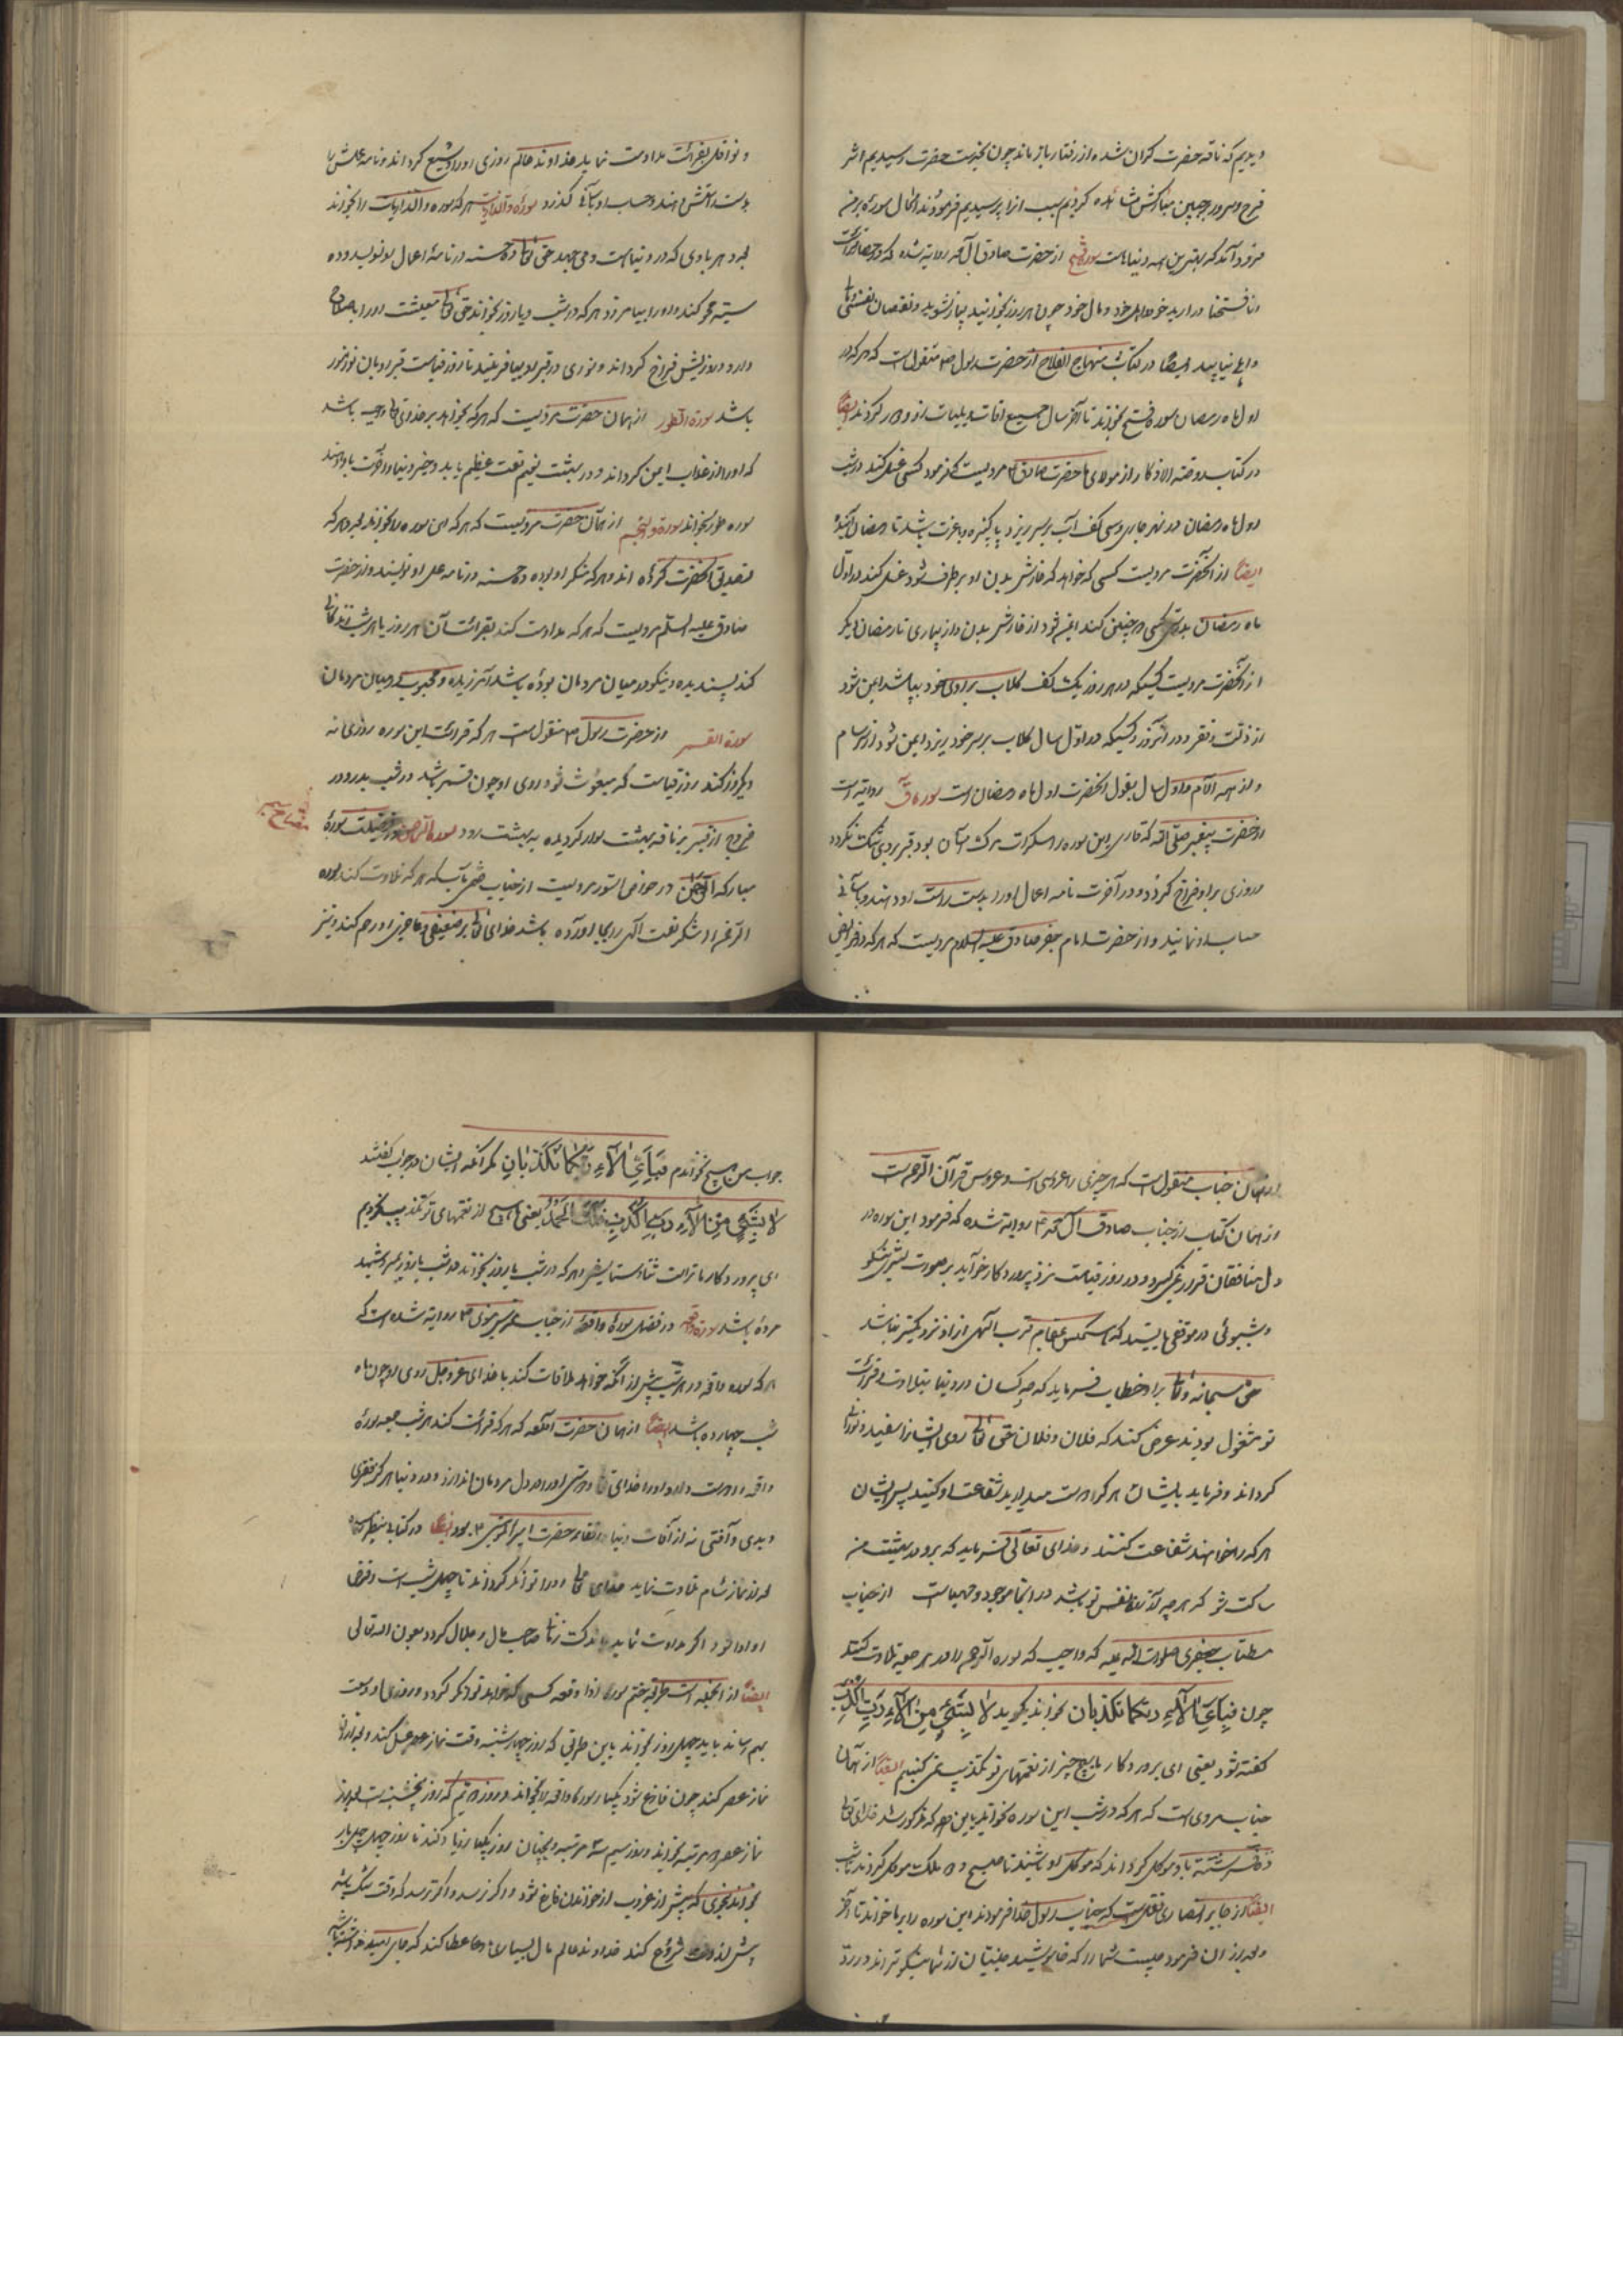 دیدیم که ناقه حضرت گران شده از رفتار باز ماند چون بخدمت حضرت رسیدیم اثر
فرح و سرور بر جبین مبارکش مشاهده کردیم سبب از پرسیدیم فرمودند الحال سوره بر من
فرود آمد که بهترین همه دنیاهاست سوره فتح از حضرت صادق آل محمد روایت شده که در
انا فتحنا در آرید خود و اهل خود و مال خود چون هر روز بخوانید بیمار نشوید و نقصان نفسی و مالی
و اهلی نیابید ایضا در کتاب منهاج الفلاح از حضرت رسول ص منقول است که هر که در
اول ماه رمضان سوره فتح بخواند تا آخر سال جمیع آفات و بلیات از او دور گردند ایضا
در کتاب روضة الاذکار از مولای ما حضرت صادق ع مرویست که فرمود کسی غسل کند در شب
اول ماه رمضان در نهر جاری و سی کف آب بر سر ریزد پاکیزه و باعزت باشد تا رمضان آینده
ایضا از آنحضرت مرویست کسی که خواهد که خارش بدن او برطرف شود غسل کند در اول
ماه رمضان بدرستی که کسی چنین کند ایمن شود از خارش بدن و از بیماری تا رمضان دیگر
از آنحضرت مرویست کسیکه در هر روز یک کف گلاب بر روی خود بپاشد ایمن شود
از ذلت و فقر و در آن روز و کسیکه در اول سال گلاب بر سر خود ریزد ایمن شود از برسام
و از همه آلام و اول سال بقول آنحضرت اول ماه رمضان است سوره ق روایت است
از حضرت پیغمبر صلی الله که قاری این سوره را سکرات مرگ آسان بود قبر بر وی تنگ نگردد
و روزی بر او فراخ گردد و در آخرت نامه اعمال او را بدست راست او دهند و بآسانی
حساب او نمایند و از حضرت امام جعفر صادق علیه السلام مرویست که هر که در فرایض
و نوافل بقرائت مداومت نماید خداوند عالم روزی او را وسیع گرداند و نامه عملش را
بدست راستش دهند و حساب او بآسانی گذرد سوره والذاریات هر که سوره والذاریات را بخواند
بعدد هر بادی که در دنیاست و می جهد حق تعالی ده حسنه در نامه اعمال او نویسد و ده
سیئه محو کند و او را بیامرزد هر که در شب و یا روز بخواند حق تعالی معیشت او را باصلاح
دارد و روزیش فراخ گرداند و نوری در قبر او بیافریند تا روز قیامت قبر او بآن نور منور
باشد سورة الطور از همان حضرت مرویست که هر که بخواند بر خدای تعالی واجب باشد
که او را از عذاب ایمن گرداند و در بهشت نعیم نعمت عظیم یابد و خیر دنیا و آخرت باو دهند
سوره طور بخواند سوره والنجم از همان حضرت مرویست که هر که این سوره را بخواند بعدد هر که
تصدیق آنحضرت کرده اند و هر که منکر او بوده ده حسنه در نامه عمل او نویسند و از حضرت
صادق علیه السلام مرویست که هر که مداومت کند بقرائت آن هر روز یا هر شب
کند پسندیده و نیکو در میان مردمان بوده باشد آمرزیده و محبوب در میان مردمان
سورة القمر از حضرت رسول ص منقول است هر که قرائت این سوره روزی نه
دیگر روز کند روز قیامت که مبعوث شود روی او چون قمر باشد در شب بدر و در
خروج از قبر بر ناقه بهشت سوار گردیده به بهشت رود سوره الرحمن در فضیلت سورۀ
مبارکه الرحمن در خواص السور مرویست از جناب ختمی مآب که هر که تلاوت کند سوره
الرحمن او شکر نعمت الهی را بجا آورده باشد خدای تعالی بر ضعیفی و عاجزی او رحم کند و نیز
از همان جناب منقول است که هر چیزی را عروسی است و عروس قرآن الرحمن است
از همان کتاب از جناب صادق آل محمد ع روایت شده که فرمود این سوره در
دل منافقان قرار نمی گیرد و در روز قیامت نزد پروردگار خود آید بر صورت بشری نیکو
و خوشبوئی در موقفی بایستد که هیچکس بمقام قرب الهی از او نزدیکتر نباشد
حق سبحانه و تعالی بر او خطاب فرماید که چه کسان در دنیا بتلاوت و قرائت
تو مشغول بودند عرض کند که فلان و فلان حق تعالی روی ایشان را سفید و نورانی
گرداند و فرماید بایشان هر کرا دوست میدارید شفاعت او کنید پس ایشان
هر که را خواهند شفاعت کنند و خدای تعالی فرماید که برو در بهشت من
ساکت شو که هر چه آرزوی نفس تو باشد در آنجا موجود و مهیاست از جناب
مستطاب جعفری صلوات الله علیه که واجب که سوره الرحمن را در هر جمعه تلاوت کنند
چون فَبِأَيِّ آلَاءِ رَبِّكُمَا تُكَذِّبَانِ بخوانند بگوید لَا بِشَيْءٍ مِنْ آلَائِكَ رَبِّ أُكَذِّبُ
گفته شود یعنی ای پروردگار ما بهیچ چیز از نعمتهای تو تکذیب نمی کنیم ایضا از همان
جناب مروی است که هر که در شب این سوره بخواند باین نحو که مذکور شد خدای تعالی
فرشته باو موکل گرداند که موکل او باشند تا صبح و ملک موکل گرداند تا شب
ایضا از جابر انصاری نقل است که جناب رسول خدا فرمودند این سوره را بر ما خواند تا آخر
و بعد از آن فرمود چیست شما را که خاموشید جنیان از شما نیکوتر اند در رد
جواب من هیچ نخواندم فَبِأَيِّ آلَاءِ رَبِّكُمَا تُكَذِّبَانِ مگر آنکه ایشان در جواب گفتند
لَا بِشَيْءٍ مِنْ آلَاءِ رَبِّنَا نُكَذِّبُ فَلَكَ الْحَمْدُ یعنی ما هیچ از نعمتهای تو تکذیب نکردیم
ای پروردگار ما تراست ثنا و ستایش و هر که در شب یا روز بخواند در شب یا روز بمیرد شهید
مرده باشد سوره واقعه در فضل سورۀ واقعه از جناب روایت شده است که
هر که سوره واقعه در هر شب پیش از آنکه خواب ملاقات کند با خدای عز و جل روی او چون ماه
شب چهارده باشد ایضا از همان حضرت که هر که قرائت کند هر شب جمعه سورۀ
واقعه دوست دارد او را خدای تعالی و دوستی او را در دل مردمان اندازد و در دنیا هرگز فقری
و بدی و آفتی نه از آفات دنیا و از رفقاء حضرت امیر المؤمنین ع بود ایضا در کتاب
بعد از نماز شام تلاوت نماید خدای تعالی او را توانگر گرداند تا چهل شب است و قرض
او ادا شود و اگر مداومت نماید صاحب مال و جلال گردد بعون الله تعالی
ایضا از آنجمله است طریقه ختم سورۀ اذا وقعت کسی که خواهد توانگر گردد و روزی او وسعت
بهم رساند باید چهل روز بخواند باین طریق که روز چهارشنبه وقت نماز عصر غسل کند و بعد از
نماز عصر کند چون فارغ شود یکبار سورۀ واقعه را بخواند و روز دویم که روز پنجشنبه است بعد از
نماز عصر دو مرتبه بخواند و روز سیم سه مرتبه و همچنان روز یکبار زیاد کند تا روز چهل چهل بار
بخواند بنحوی که پیش از غروب از خواندن فارغ شود و اگر نرسد و اگر ترسد که وقت تنگ باشد
پیش از وقت شروع کند خداوند عالم مال بسیاری باو عطا کند که جای امید نداشته باشد